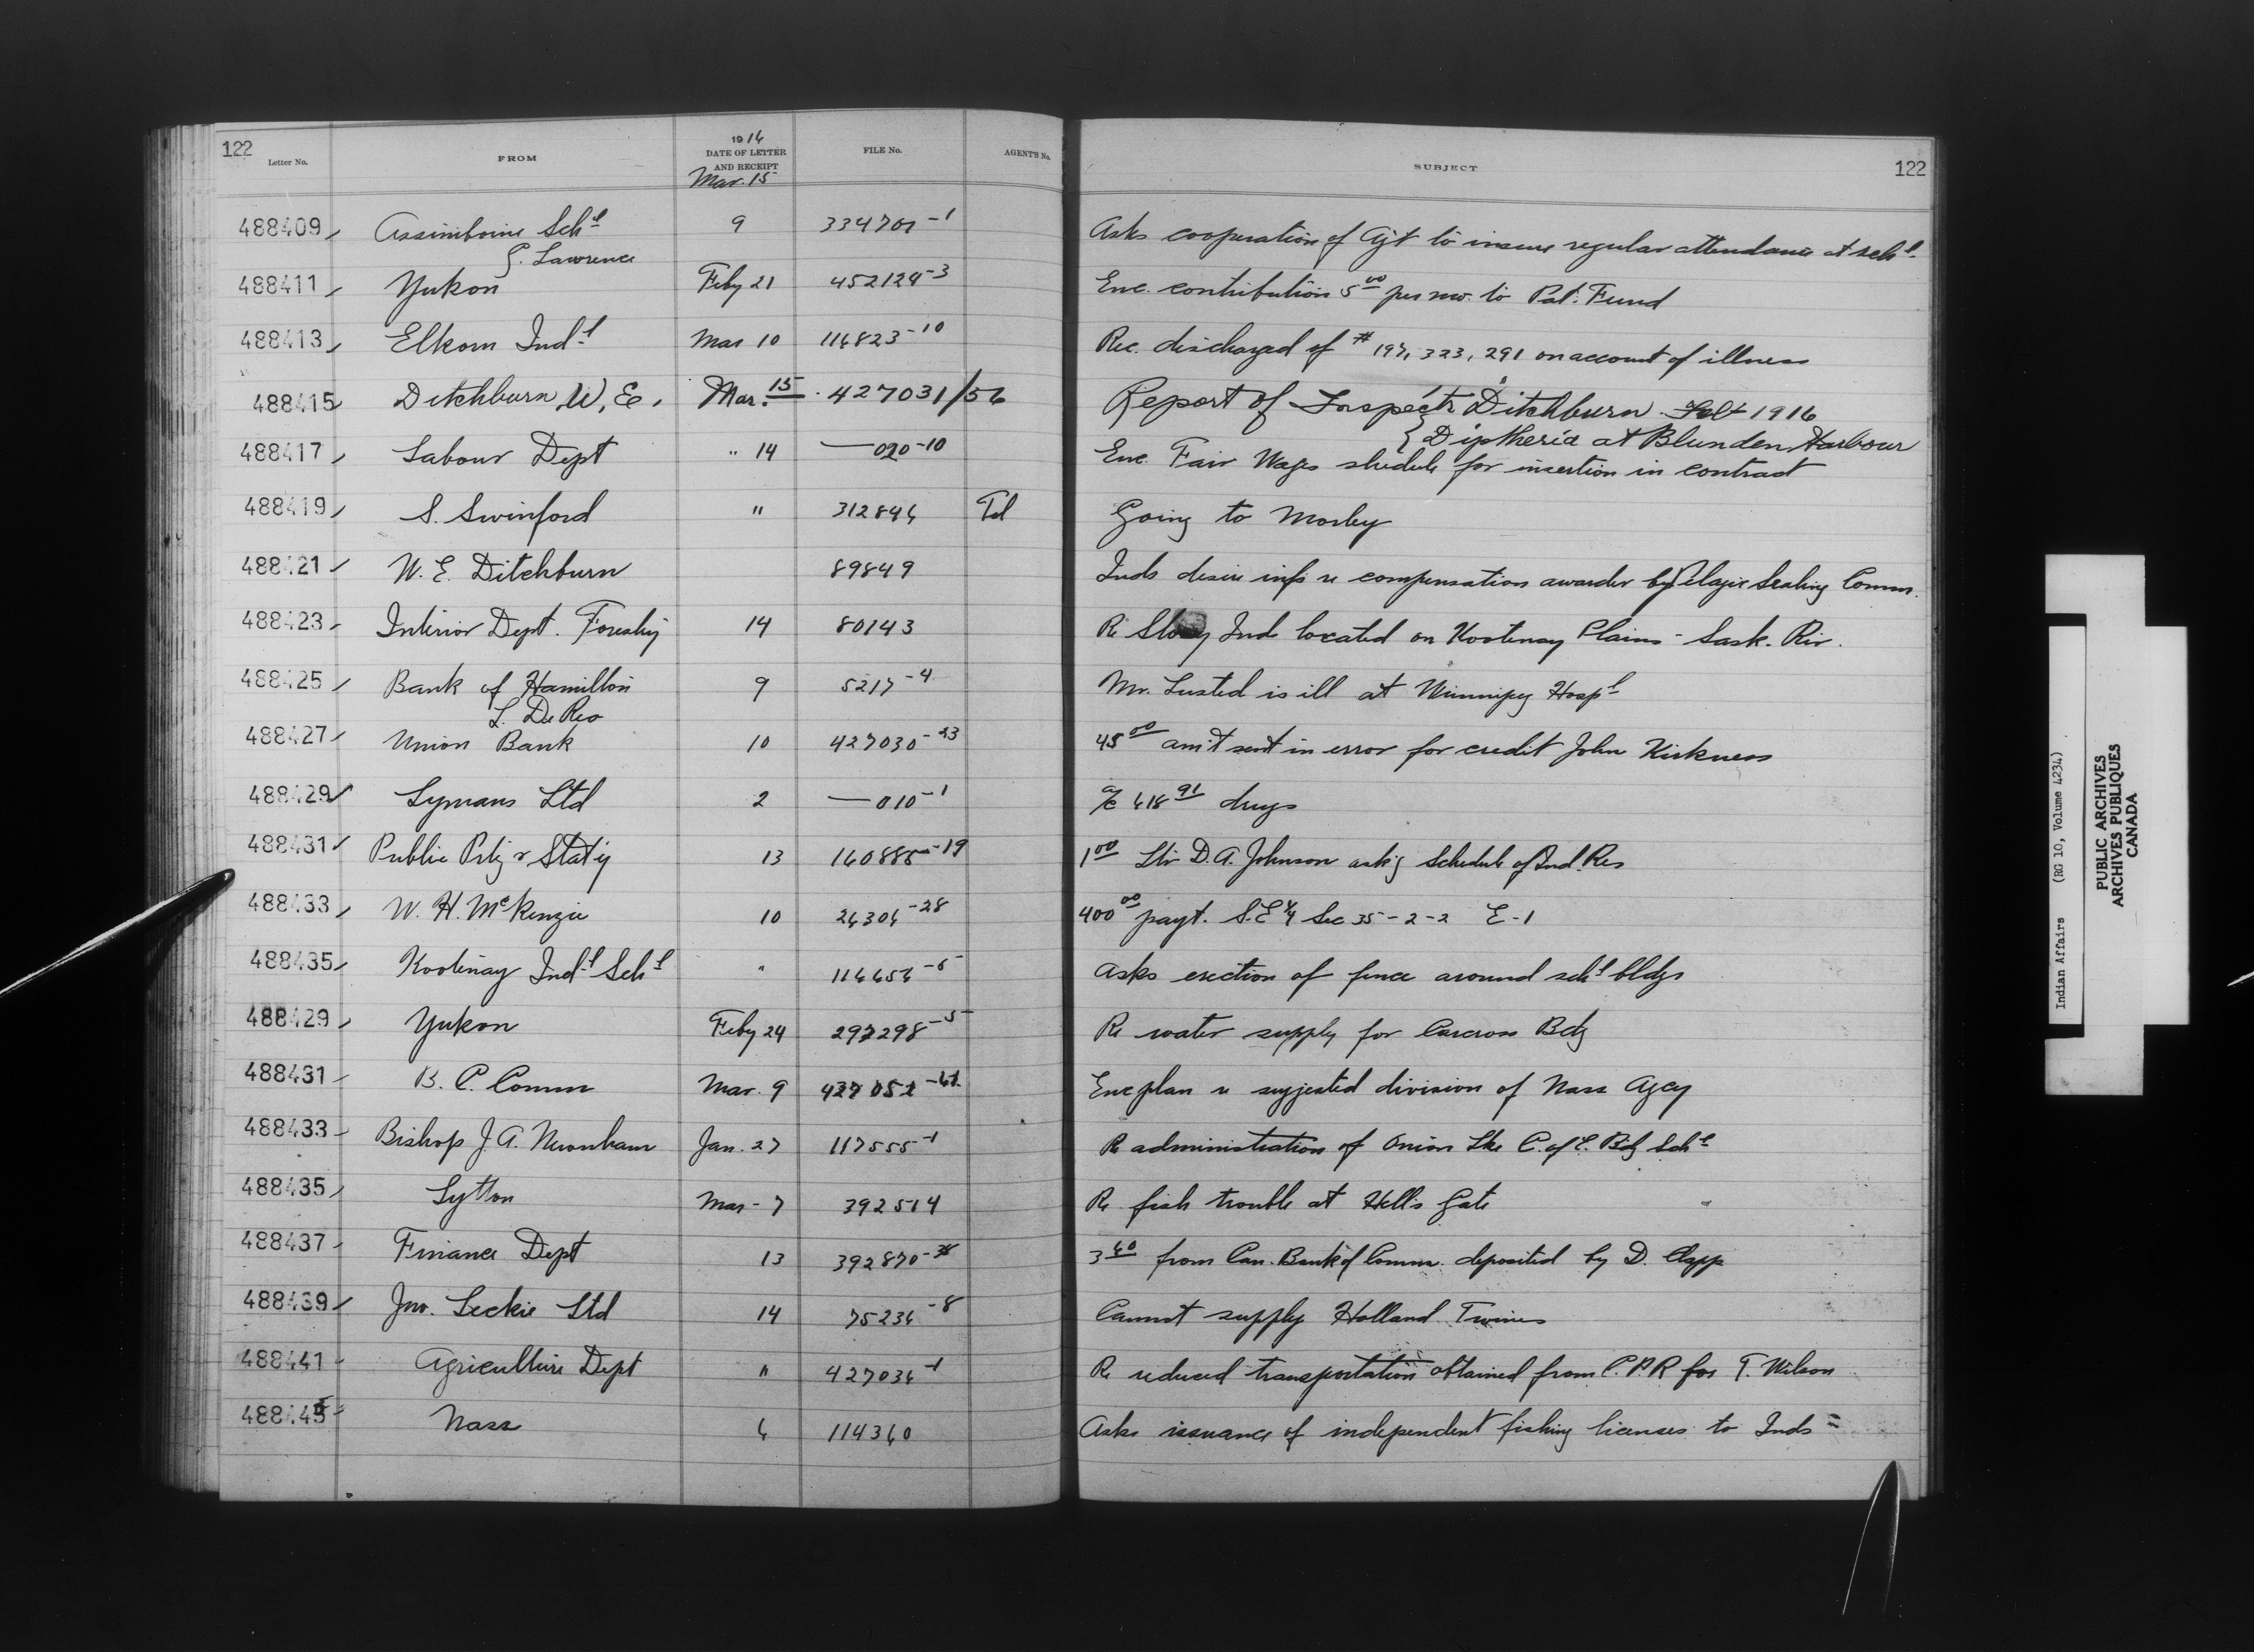 122
Letter No. FROM 1916 DATE OF LETTER AND RECEIPT FILE No. AGENT'S No. SUBJECT 122
Mar. 15
488409 Assiniboine Schl 9 334701-1 Asks cooperation of Agt to insure regular attendance at schl.
G. Lawrence
488411 Yukon Feby 21 452124-3 Enc. contribution 5 00 per mo. to Pat. Fund
488413 Elkorn Indl Mar 10 116823-10 Rec. discharged of # 197, 323, 291 on account of illness
488415 Ditchburn, W. E. Mar. 15 427031/56 Report of Inspectr Ditchburn Feb 1916
{ Diptheria at Blunden Harbour
488417 Labour Dept " 14 —020-10 Enc. Fair Wages shedule for insertion in contract
488419 S. Swinford " 312846 Tel Going to Morley
488421 W. E. Ditchburn 89849 Inds desire info re compensation awarded by Pelagic Sealing Comm.
488423 Interior Dept. Forestry 14 80143 Re Stony Inds located on Kootenay Plains - Sask. Riv.
488425 Bank of Hamilton 9 5217-4 Mr. Lusted is ill at Winnipeg Hospl
L. De Rео
488427 Union Bank 10 427030-23 45 00 am't sent in error for credit John Kirkness
488429 Lymans Ltd 2 —010-1 a/c 618 91 drugs
488431 Public Prtg & Stat'y 13 160885-19 1 00 Ltr D. A. Johnson ask'g Schedule of Ind. Res
488433 W. H. McKenzie 10 26306-28 400 00 payt. S.E 1/4 Sec 35-2-2 E-1
488435 Kootenay Indl Schl " 116656-5 Asks erection of fence around schl bldgs
488429 Yukon Feby 24 297298-5 Re water supply for Carcross Bdg
488431 B. C. Comm Mar. 9 Enc plan re suggested division of Nass Agcy
488433 Bishop J. A. Newnham Jan. 27 117555-1 Re administration of Onion Lke C. of E. Bdg Schl
488435 Lytton Mar - 7 392514 Re fish trouble at Hell's Gate
488437 Finance Dept 13 392870-38 3 60 from Can. Bank of Comm. deposited by D. Clapp
488439 Jno. Leckie Ltd 14 75236-8 Cannot supply Holland Twines
488441 Agriculture Dept " 427036-1 Re reduced transportation obtained from C.P.R for T. Wilson
488443 Nass 6 114360 Asks issuance of independent fishing licenses to Inds
Indian Affairs (RG 10, Volume 4234)
PUBLIC ARCHIVES
ARCHIVES PUBLIQUES
CANADA